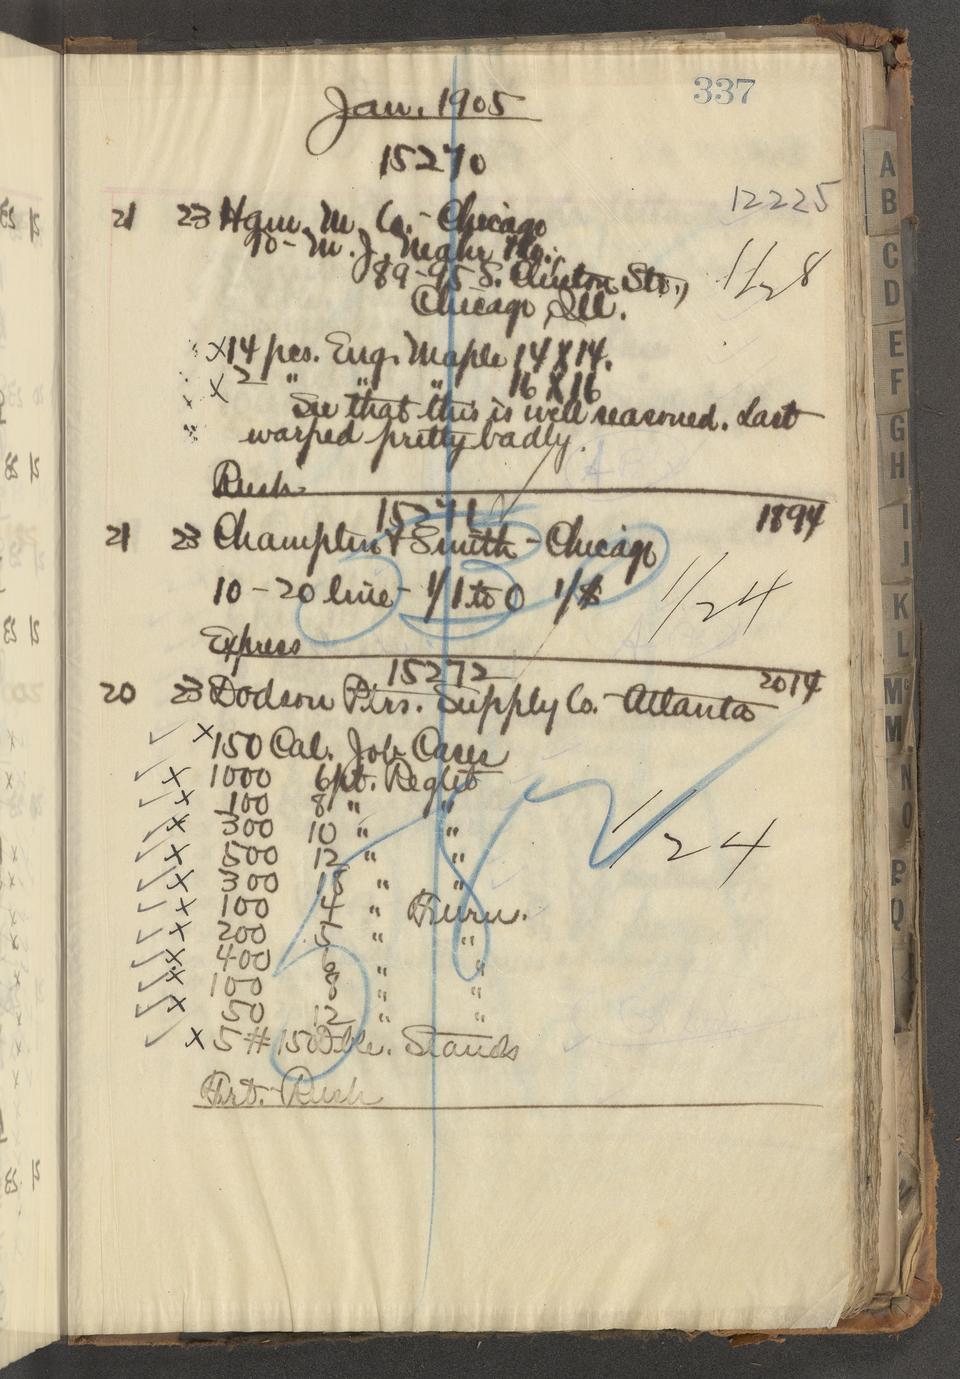 337
Jan. 1905
15270
12225
21 23 Ham. M. Co. - Chicago
89-95 S. Clinton Str.,
Chicago, Ill.
1/28
x 14 pcs. Eng. Maple 14 X 14.
x 2 " " " 16 X 16
See that this is well seasoned. Last
warped pretty badly.
Rush
15271
1894
21 23 Champlin & Smith - Chicago
10 - 20 line - 1/1 to 0 1/$
1/24
Express
15272
2014
20 23 Dodson Ptrs. Supply Co. - Atlanta
✓ x 150 Cal. Job Cases
✓ x 1000 6 pt. Reglet
✓ x 100 8 " "
✓ x 300 10 " "
✓ x 500 12 " "
1/24
✓ x 300 18 " "
✓ x 100 4 " Furn.
✓ x 200 5 " "
✓ x 400 6 " "
✓ x 100 8 " "
✓ x 50 12 " "
✓ x 5 # 15 Dble. Stands
Frt. Rush
A
B
C
D
E
F
G
H
I
J
K
L
Mc
M
N
O
P
Q